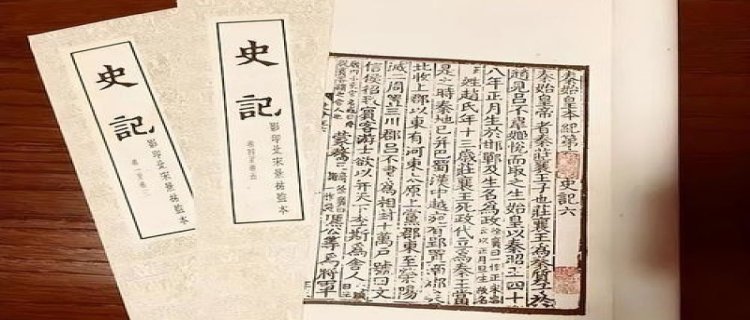 史記
影印北宋景祐監本
史記
影印北宋景祐監本
秦始皇本紀第六 史記六
秦始皇帝者秦莊襄王子也莊襄王為秦質子於
趙見呂不韋姬悅而取之生始皇以秦昭王四十
八年正月生於邯鄲及生名為政徐廣曰一作正
姓趙氏年十三歲莊襄王死政代立為秦王當
是之時秦地已并巴蜀漢中越宛有郢置南郡矣
北收上郡以東有河東太原上黨郡東至滎陽
滅二周置三川郡呂不韋為相封十萬戶號曰文
信侯招致賓客游士欲以并天下李斯為舍人
蒙驁
麃公等為將軍